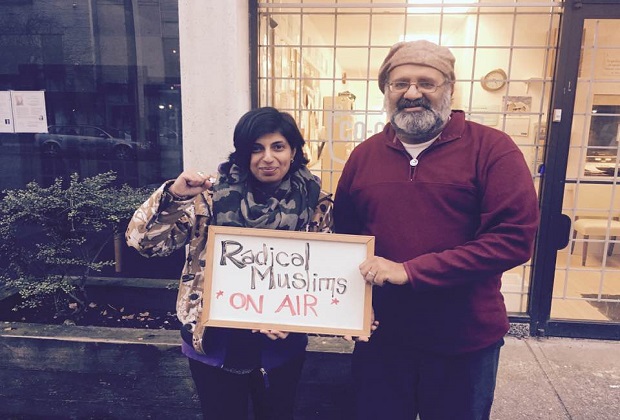 Radical
Muslims
* ON AIR *